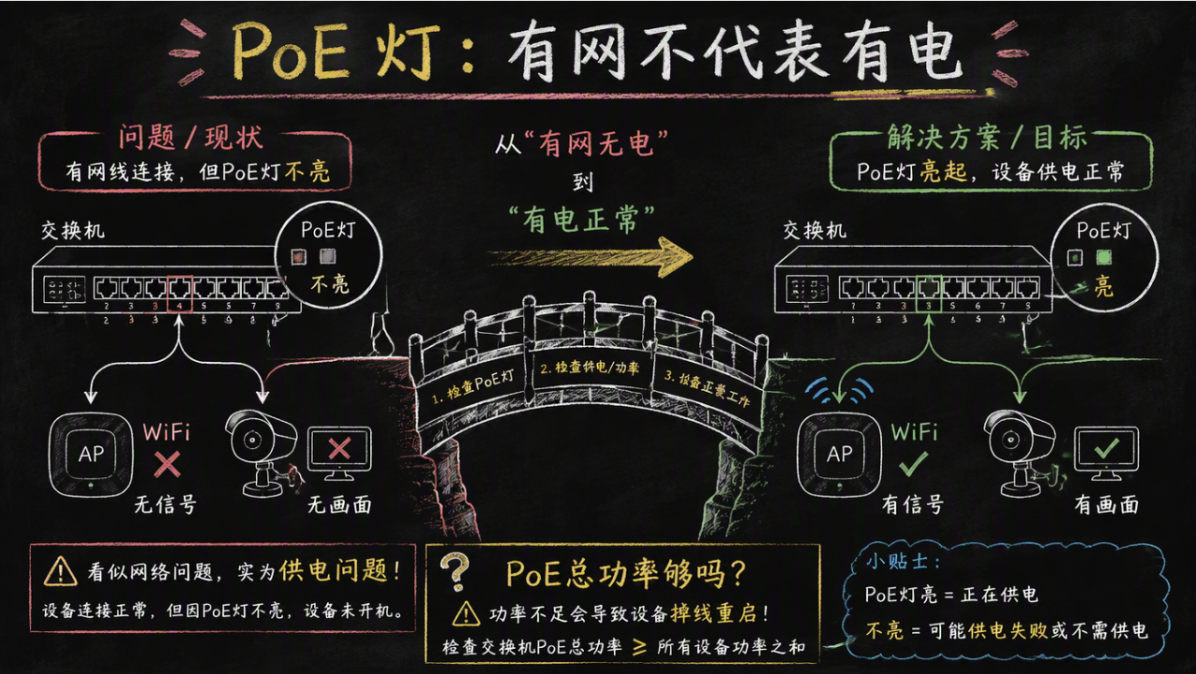 PoE 灯：有网不代表有电
问题 / 现状
有网线连接，但PoE灯不亮
从“有网无电”
到
“有电正常”
解决方案 / 目标
PoE灯亮起，设备供电正常
交换机
PoE灯
不亮
交换机
PoE灯
亮
1. 检查PoE灯
2. 检查供电/功率
3.
工作
AP
WiFi
无信号
无画面
AP
WiFi
有信号
有画面
看似网络问题，实为供电问题！
设备连接正常，但因PoE灯不亮，设备未开机。
?
PoE总功率够吗？
功率不足会导致设备掉线重启！
检查交换机PoE总功率 ≥ 所有设备功率之和
小贴士：
PoE灯亮 = 正在供电
不亮 = 可能供电失败或不需供电